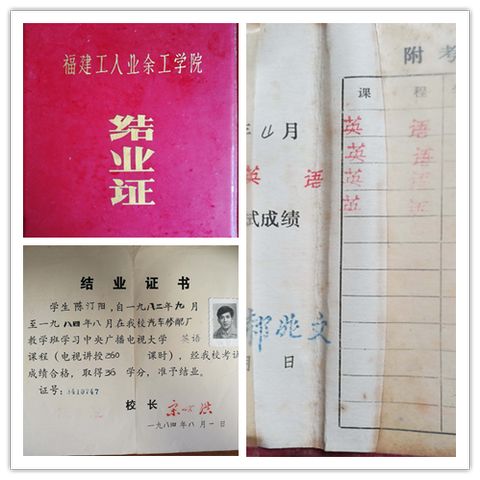 福建工人业余工学院
结
业
证
结业证书
学生陈汀阳，自一九八二年九月
至一九八四年八月在我校汽车修配厂
教学班学习中央广播电视大学 英语
课程（电视讲授360 课时），经我校考试
成绩合格，取得36学分，准予结业。
证号：8410747
校长
一九八四年八月一日
年4月
英语
试成绩
月 日
附考
课程
英语
英语
英语
英语